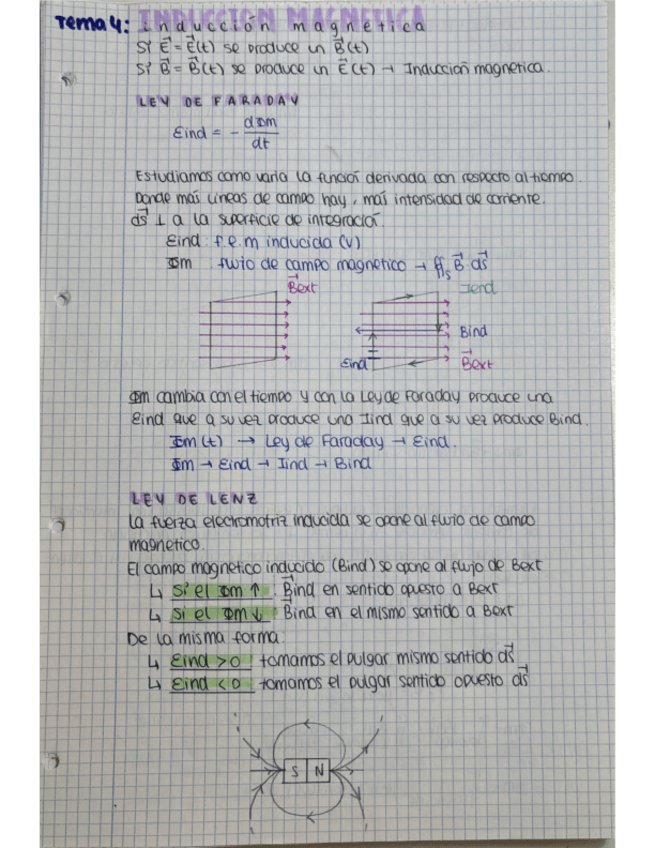 Tema 4: INDUCCIÓN MAGNETICA
Inducción magnetica
Si E⃗ = E⃗(t) se produce un B⃗(t)
Si B⃗ = B⃗(t) se produce un E⃗(t) → Induccion magnetica.
LEY DE FARADAY
Eind = - dΦm/dt
Estudiamos como varia la función derivada con respecto al tiempo.
Donde más lineas de campo hay, más intensidad de corriente.
ds⃗ ⊥ a la superficie de integración.
Eind : f.e.m inducida (V)
Φm : flujo de campo magnetico → ∬s B⃗ · ds⃗
B⃗ext
Iend
Bind
Eind
B⃗ext
Φm cambia con el tiempo y con la Ley de Faraday produce una
Eind que a su vez produce una Iind que a su vez produce Bind.
Φm (t) → Ley de Faraday → Eind.
Φm → Eind → Iind → Bind
LEY DE LENZ
La fuerza electromotriz inducida se opone al flujo de campo
magnetico.
El campo magnetico inducido (Bind) se opone al flujo de Bext
↳ Si el Φm ↑ : B⃗ind en sentido opuesto a Bext
↳ Si el Φm ↓ : Bind en el mismo sentido a Bext
De la misma forma:
↳ Eind > 0 tomamos el pulgar mismo sentido ds⃗
↳ Eind < 0 tomamos el pulgar sentido opuesto ds⃗
S N